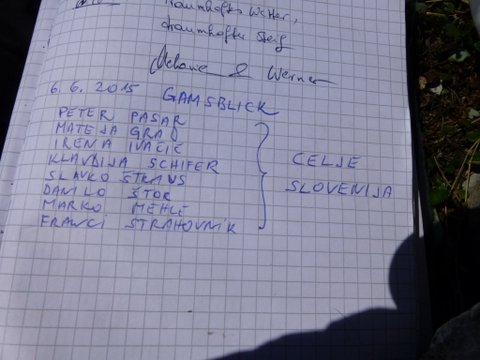 traumhaftes Wetter,
traumhafter Steig
Melanie & Werner
6. 6. 2015 GAMSBLICK
PETER PASAR
MATEJA GRAD
IRENA IVAČIČ
KLAVDIJA SCHIFER
SLAVKO ŠTRAUS
DANILO ŠTOR
MARKO MEHLE
FRANCI STRAHOVNIK
CELJE
SLOVENIJA